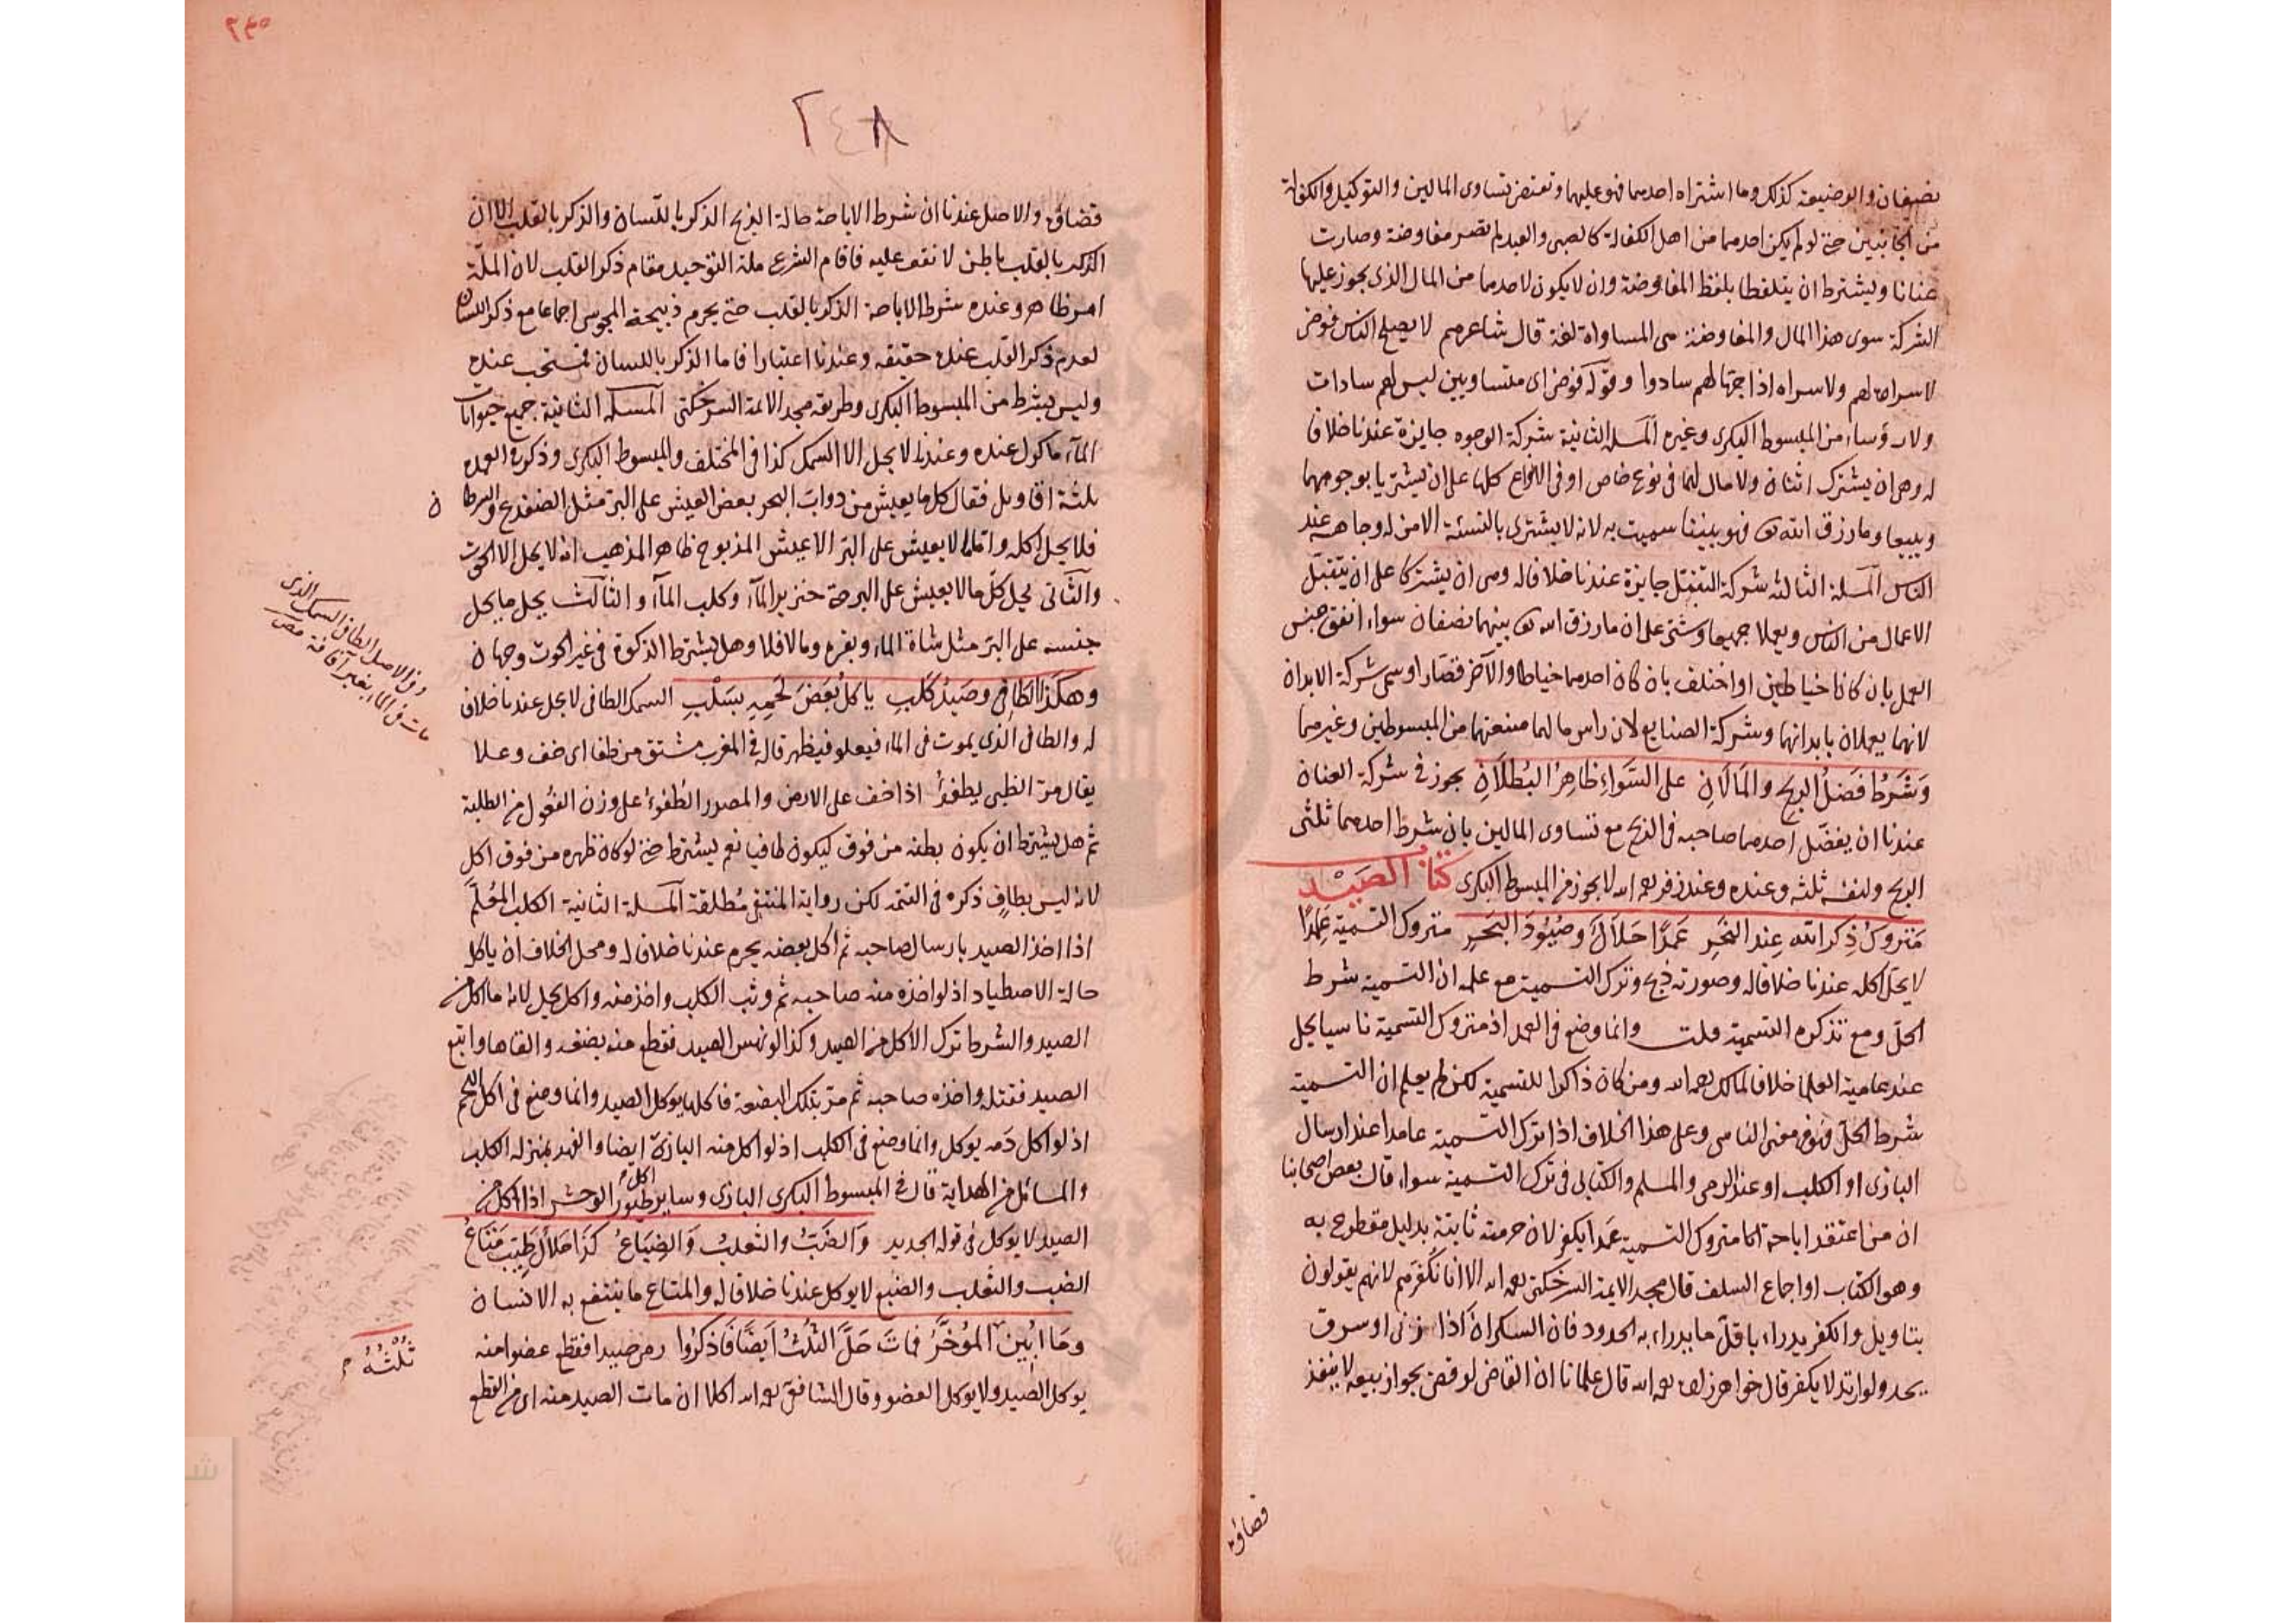 نصيفان والوضيعة كذلك وما اشتراه احدهما فهو عليهما وتقتضى تساوى المالين والتوكيل والكفالة
من الجانبين حتى لو لم يكن احدهما من اهل الكفالة كالصبى والعبد لم تصر مفاوضة وصارت
عنانا ويشترط ان يتلفظا بلفظ المفاوضة وان لا يكون لاحدهما من المال الذى يجوز عليها
الشركة سوى هذا المال والمفاوضة هى المساواة لغة قال شاعرهم لا يصلح الناس فوضى
لا سراة لهم ولا سراة اذا جهالهم سادوا وقوله فوضى اى متساويين ليس لهم سادات
ولا رؤساء من المبسوط البكرى وغيره المسلة الثانية شركة الوجوه جايزة عندنا خلافا
له وهى ان يشترك اثنان ولا مال لهما فى نوع خاص او فى الانواع كلها على ان يشتريا بوجوههما
ويبيعا وما رزق الله تع فهو بيننا سميت به لانه لا يشترى بالنسئة الا من له وجاهة عند
الناس المسلة الثالثة شركة التقبل جايزة عندنا خلافا له وهى ان يشتركا على ان يتقبل
الاعمال من الناس ويعملا جميعا وشتى على ان ما رزق الله تع بينهما نصفان سواء اتفق جنس
العمل بان كانا خياطين او اختلف بان كان احدهما خياطا والآخر قصارا وسمى شركة الابدان
لانهما يعملان بابدانهما وشركة الصنايع لان راس مالهما صنعتهما من المبسوطين وغيرهما
وَشَرْطُ فَضْلُ الربح والمَالَانِ على السَّوَاءِ ظَاهِرُ البُطْلَانِ يجوز فى شركة العنان
عندنا ان يفضل احدهما صاحبه فى الربح مع تساوى المالين بان شرط احدهما ثلثى
الربح ولنفسه ثلثه وعنده وعند زفر رحمه الله لا يجوز من المبسوط البكرى كتاب الصَيْد
مَتروكُ ذِكرِ الله عِند النَّحْرِ عَمْدًا حَلَالٌ وصُيُودُ البَحْرِ متروك التسمية عَمْدًا
لا يحل اكله عندنا خلافا له وصورته ذبح وترك التسمية مع علمه ان التسمية شرط
الحل ومع تذكره التسمية قلت وانما وضع فى العمد اذ متروك التسمية ناسيا يحل
عند عامية العلما خلافا لمالك رحمه الله ومن كان ذاكرا للتسمية لكن لم يعلم ان التسمية
شرط الحل فهو فى معنى الناسى وعلى هذا الخلاف اذا ترك التسمية عامدا عند ارسال
البازى او الكلب او عند الرمى والمسلم والكتابى فى ترك التسمية سواء قال بعض اصحابنا
ان من اعتقد اباحة متروك التسمية عمدا يكفر لان حرمته ثابتة بدليل مقطوع به
وهو الكتاب او اجماع السلف قال مجد الايمة السرخكتى رحمه الله الا انا نكفرهم لانهم يقولون
بتاويل والكفر يدراء باقل ما يدراء به الحدود فان السكران اذا زنى او سرق
يحد ولو ارتد لا يكفر قال خواهر زاده رحمه الله قال علمانا ان القاضى لو قضى بجواز بيعه لا ينفذ
قضاؤه
٢٤٨
قضاؤه والاصل عندنا ان شرط الاباحة حالة الذبح الذكر باللسان والذكر بالقلب الا ان
الذكر بالقلب باطن لا نقف عليه فاقام الشرع ملة التوحيد مقام ذكر القلب لان الملة
امر ظاهر وعنده شرط الاباحة الذكر بالقلب حتى يحرم ذبيحة المجوسى اجماعا مع ذكر اللسان
لعدم ذكر القلب عنده حقيقه وعندنا اعتبارا فاما الذكر باللسان فمستحب عنده
وليس بشرط من المبسوط البكرى وطريقة مجد الائمة السرخكتى المسئلة الثانية جميع حيوانات
الماء ماكول عنده وعندنا لا يحل الا السمك كذا فى المختلف والمبسوط البكرى وذكر فى العمدة
ثلثة اقاويل فقال كل ما يعيش من دواب البحر بعض العيش على البر مثل الضفدع والسرطان
فلا يحل اكله واما ما لا يعيش على البر الا عيش المذبوح ظاهر المذهب انه لا يحل الا الحوت
والثانى يحل كل ما لا يعيش على البر حتى خنزير الماء وكلب الماء والثالث يحل ما يحل
جنسه على البر مثل شاة الماء وبقره وما لا فلا وهل يشترط الذكوة فى غير الحوت وجهان
وهكَذَا الطَافِى وصَيدُ كَلبِ ياكلُ بَعْضَ لَحْمِهِ بسَلْبِ السمك الطافى لا يحل عندنا خلافا
له والطافى الذى يموت فى الماء فيعلو فيظهر قال فى المغرب مشتق من طفا اى خف وعلا
يقال مر الظبى يطفو اذا خف على الارض والمصدر الطفو على وزن الفعول من الطلبة
ثم هل يشترط ان يكون بطنه من فوق ليكون طافيا نعم يشترط حتى لو كان ظهره من فوق اكل
لانه ليس بطافٍ ذكره فى التتمه لكن رواية المنتقى مُطلقة المسلة الثانية الكلب المُعَلَّم
اذا اخذ الصيد بارسال صاحبه ثم اكل بعضه يحرم عندنا خلافا له ومحل الخلاف ان ياكل
حالة الاصطياد اذ لو اخذه منه صاحبه ثم وثب الكلب واخذ منه واكل يحل لانه ما اكل من
الصيد والشرط ترك الاكل من الصيد وكذا لو نهس الصيد فقطع منه بضعه والقاها واتبع
الصيد فقتله واخذه صاحبه ثم مر بتلك البضعة فاكلها يوكل الصيد وانما وضع فى اكل اللحم
اذ لو اكل دمه يوكل وانما وضع فى الكلب اذ لو اكل منه البازى ايضا والفهد بمنزلة الكلب
والمسائل من الهداية قال فى المبسوط البكرى البازى وساير طيور الوحش اذا اكل من
الصيد لا يوكل فى قوله الجديد وَالضَبُّ والثعلبُ وَالضِبَاعُ كَذَا حَلَالٌ طَيِّبٌ مَتَاعُ
الضب والثعلب والضبع لا يوكل عندنا خلافا له والمتاع ما ينتفع به الانسان
ومَا اُبِينَ المؤخَّرُ فمَاتَ حَلَّ الثلُثُ اَيضًا فَاذكرُوا رمى صيدا فقطع عضوا منه
يوكل الصيد ولا يوكل العضو وقال الشافعى رحمه الله اكلا ان مات الصيد منه اى من القطع
وفى الاصل الطافى السمك الذى
مات فى الماء بغير آفة
ثُلْثُهُ